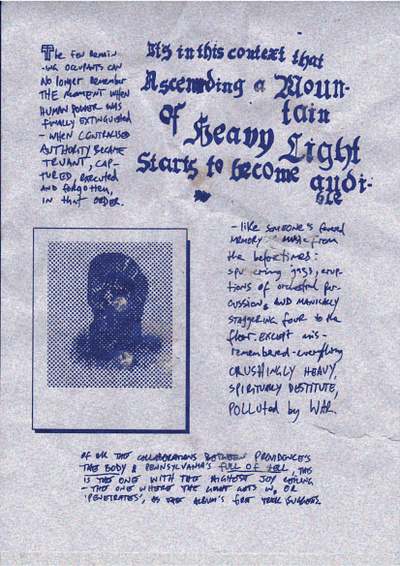 The few remain
-ing occupants can
no longer remember
THE MOMENT WHEN
HUMAN POWER WAS
finally extinguished
- WHEN CENTRALISED
AUTHORITY BECAME
TRUANT, CAP-
TURED, executed
AND forgotten,
IN that ORDER.
It's in this context that
Ascending a Moun-
tain
of Heavy Light
Starts to become audi-
ble
- like someone's
memory - music from
the beforetimes:
jazz, erup-
tions of orchestral per-
cussion, AND MANICALLY
staggering four to the
floor. EXCEPT mis-
remembered - everything
CRUSHINGLY HEAVY,
SPIRITUALLY DESTITUTE,
POLLUTED by WAR.
OF all THE COLLABORATIONS BETWEEN PROVIDENCE'S
THE BODY & PENNSYLVANIA'S FULL OF HELL, THIS
IS THE ONE WITH THE HIGHEST JOY CEILING
- THE ONE WHERE THE LIGHT GETS IN, OR
'PENETRATES', AS THE ALBUM'S first TRACK SUGGESTS.